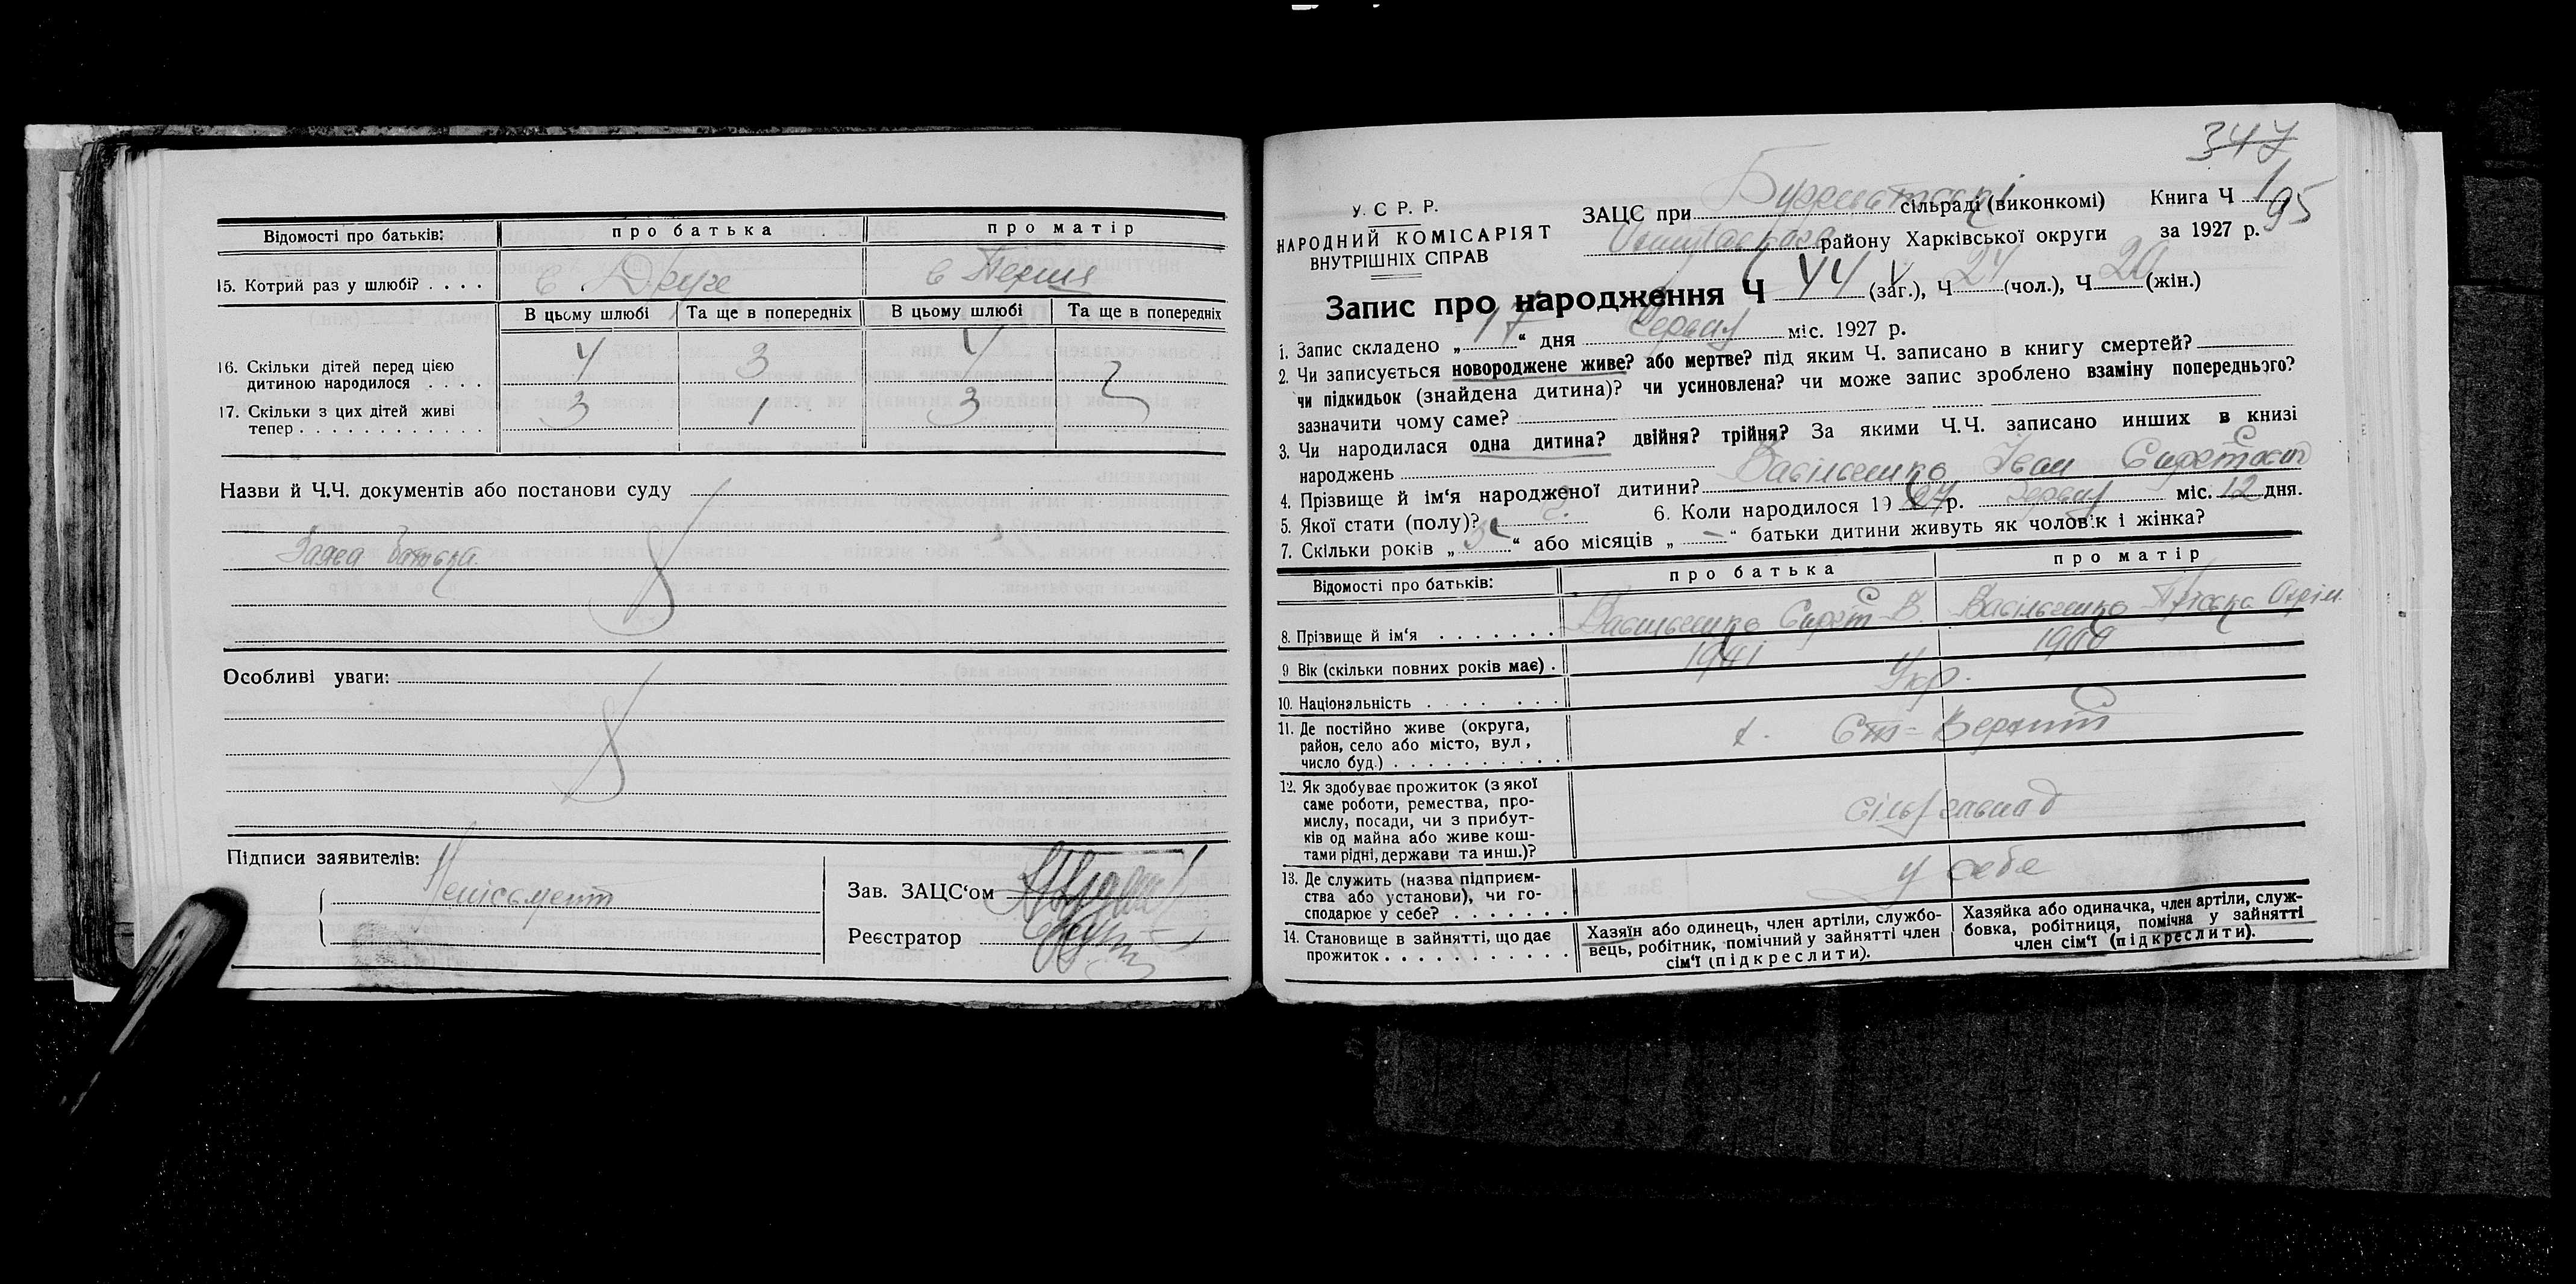 Відомості про батьків: про батька про матір
15. Котрий раз у шлюбі? . . . . в Друге в Перше
В цьому шлюбі Та ще в попередніх В цьому шлюбі Та ще в попередніх
16. Скільки дітей перед цією
дитиною народилося . . . . 4 3 4
17. Скільки з цих дітей живі
тепер . . . . . . . . . . . . 3 1 3
Назви й Ч.Ч. документів або постанови суду
Заява батька.
Особливі уваги:
Підписи заявителів:
Неписьмент
Зав. ЗАЦС‘ом
Реєстратор
347
195
У. С Р. Р.
НАРОДНИЙ КОМІСАРІЯТ
ВНУТРІШНІХ СПРАВ
ЗАЦС при сільраді (виконкомі) Книга Ч 1
району Харківської округи за 1927 р.
Запис про народження Ч 44 (заг.), Ч 24 (чол.), Ч 20 (жін.)
1. Запис складено „ 17 “ дня Червня міс. 1927 р.
2. Чи записується новороджене живе? або мертве? під яким Ч. записано в книгу смертей?
чи підкидьок (знайдена дитина)? чи усиновлена? чи може запис зроблено взаміну попереднього?
зазначити чому саме?
3. Чи народилася одна дитина? двійня? трійня? За якими Ч.Ч. записано инших в книзі
народжень
4. Прізвище й ім‘я народженої дитини? Васільченко Іван
5. Якої стати (полу)? 6. Коли народилося 19 27 р. Червня міс. 12 дня.
7. Скільки років „ “ або місяців „ — “ батьки дитини живуть як чоловік і жінка?
Відомості про батьків: про батька про матір
8. Прізвище й ім‘я . . . . . . . Васильченко Васільченко
9 Вік (скільки повних років має) . 1900
10. Національність . . . . . . . Укр.
11. Де постійно живе (округа,
район, село або місто, вул,
число буд.) . . . . . . . . . .
12. Як здобуває прожиток (з якої
саме роботи, ремества, про-
мислу, посади, чи з прибут-
ків од майна або живе кош-
тами рідні, держави та инш.)?
13. Де служить (назва підприєм-
ства або установи), чи го-
сподарює у себе? . . . . . . . у себе
14. Становище в зайнятті, що дає
прожиток . . . . . . . . . . .
Хазяїн або одинець, член артіли, службо-
вець, робітник, помічний у зайнятті член
сім‘ї (підкреслити).
Хазяйка або одиначка, член артіли, служ-
бовка, робітниця, помічна у зайнятті
член сім‘ї (підкреслити).